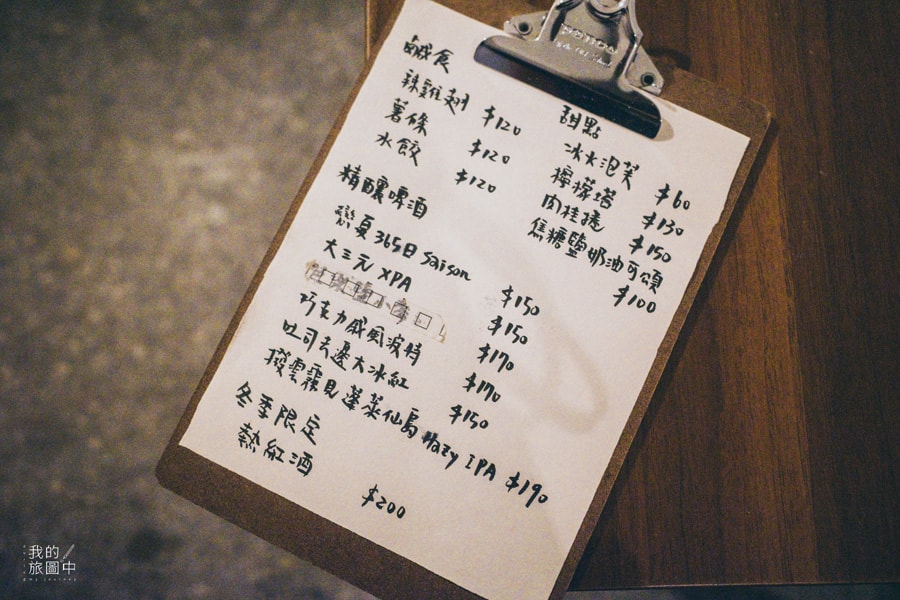 鹹食
辣雞翅 $120
薯條 $120
水餃 $120
精釀啤酒
戀夏365日 Saison $150
大三元 XPA $150
$170
巧克力威風波特 $170
吐司去邊大冰紅 $150
撥雲霧見蓬萊仙島 Hazy IPA $190
冬季限定
熱紅酒 $200
甜點
冰火泡芙 $60
檸檬塔 $130
肉桂捲 $150
焦糖鹽奶油可頌 $100
我的
旅圖中